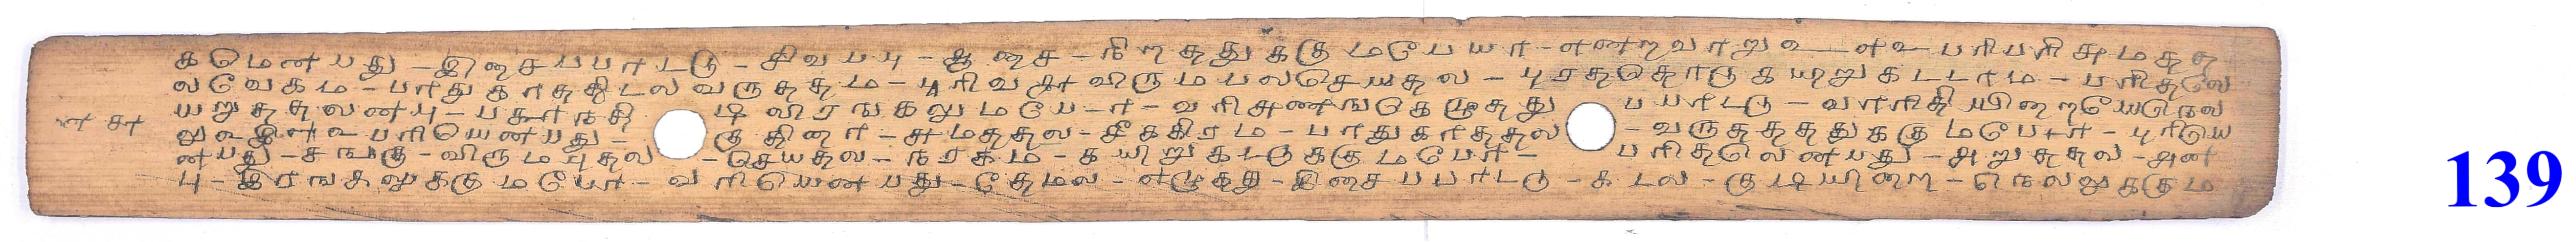 கமெனபது - இசைபபாடடு - சிவபபு - ஆசை - நிறததுககு மபெயர - என்றவாறு
லவேகம - பாதுகாததிடல வருததம - புரிவளரவிருமபலசெயதல - புரததொடு கயிறுகடடாம - பரிதலே
யறுததலனபு - பதாகதி டி விரஙகலுமபேர - வரிஅணஙகெழுதது பாடடு - வாரிதி யினறயேநெல
பரியெனபது - குதிரை - அமததல - சீககிரம - பாதுகாததல - வருததததுககுமபேர - புரியெ
னபது - சஙகு - விருமபுதல - செயதல - நரகம - கயிறு கடடுககுமபேர - பரிதலெனபது - அறுததல - அன
பு - இரஙகலுககுமபேர - வரியெனபது - தேமல - எழுதது - இசைபபாடடு - கடல - குடியிறை - நெலலுககும
139